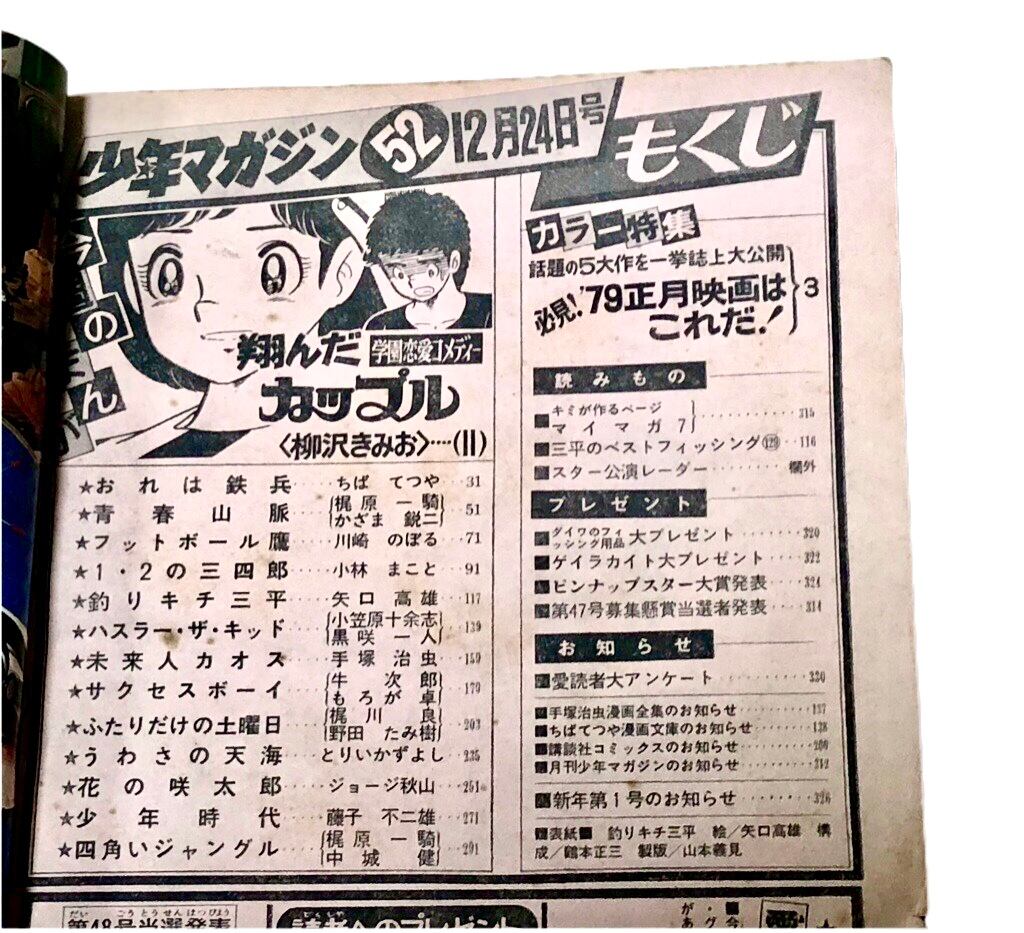 少年マガジン 52 12月24日号
もくじ
今
の
ん
翔んだ
学園恋愛コメディー
カップル
〈柳沢きみお〉····(11)
★おれは鉄兵····ちば てつや····31
★青春山脈····梶原 一騎 かざま 鋭二····51
★フットボール鷹····川崎 のぼる····71
★1・2の三四郎····小林 まこと····91
★釣りキチ三平····矢口 高雄····117
★ハスラー・ザ・キッド····小笠原十余志 黒咲 一人····139
★未来人カオス····手塚 治虫····159
★サクセスボーイ····牛 次郎 もろが 卓····179
★ふたりだけの土曜日····梶川 良 野田 たみ樹····203
★うわさの天海····とりいかずよし····235
★花の咲太郎····ジョージ秋山····251
★少年時代····藤子 不二雄····271
★四角いジャングル····梶原 一騎 中城 健····291
カラー特集
話題の5大作を一挙誌上大公開
必見!'79正月映画は
これだ!
3
読みもの
■キミが作るページ
マイマガ7····315
■三平のベストフィッシング(129)····116
■スター公演レーダー····欄外
プレゼント
■ダイワのフィッシング用品 大プレゼント····320
■ゲイラカイト大プレゼント····322
■ピンナップスター大賞発表····324
■第47号募集懸賞当選者発表····314
お知らせ
■愛読者大アンケート····330
■手塚治虫漫画全集のお知らせ····137
■ちばてつや漫画文庫のお知らせ····138
■講談社コミックスのお知らせ····200
■月刊少年マガジンのお知らせ····312
■新年第1号のお知らせ····326
■表紙■ 釣りキチ三平 絵/矢口高雄 構
成/鶴本正三 製版/山本義見
第48号当選発表
読者へのプレゼント